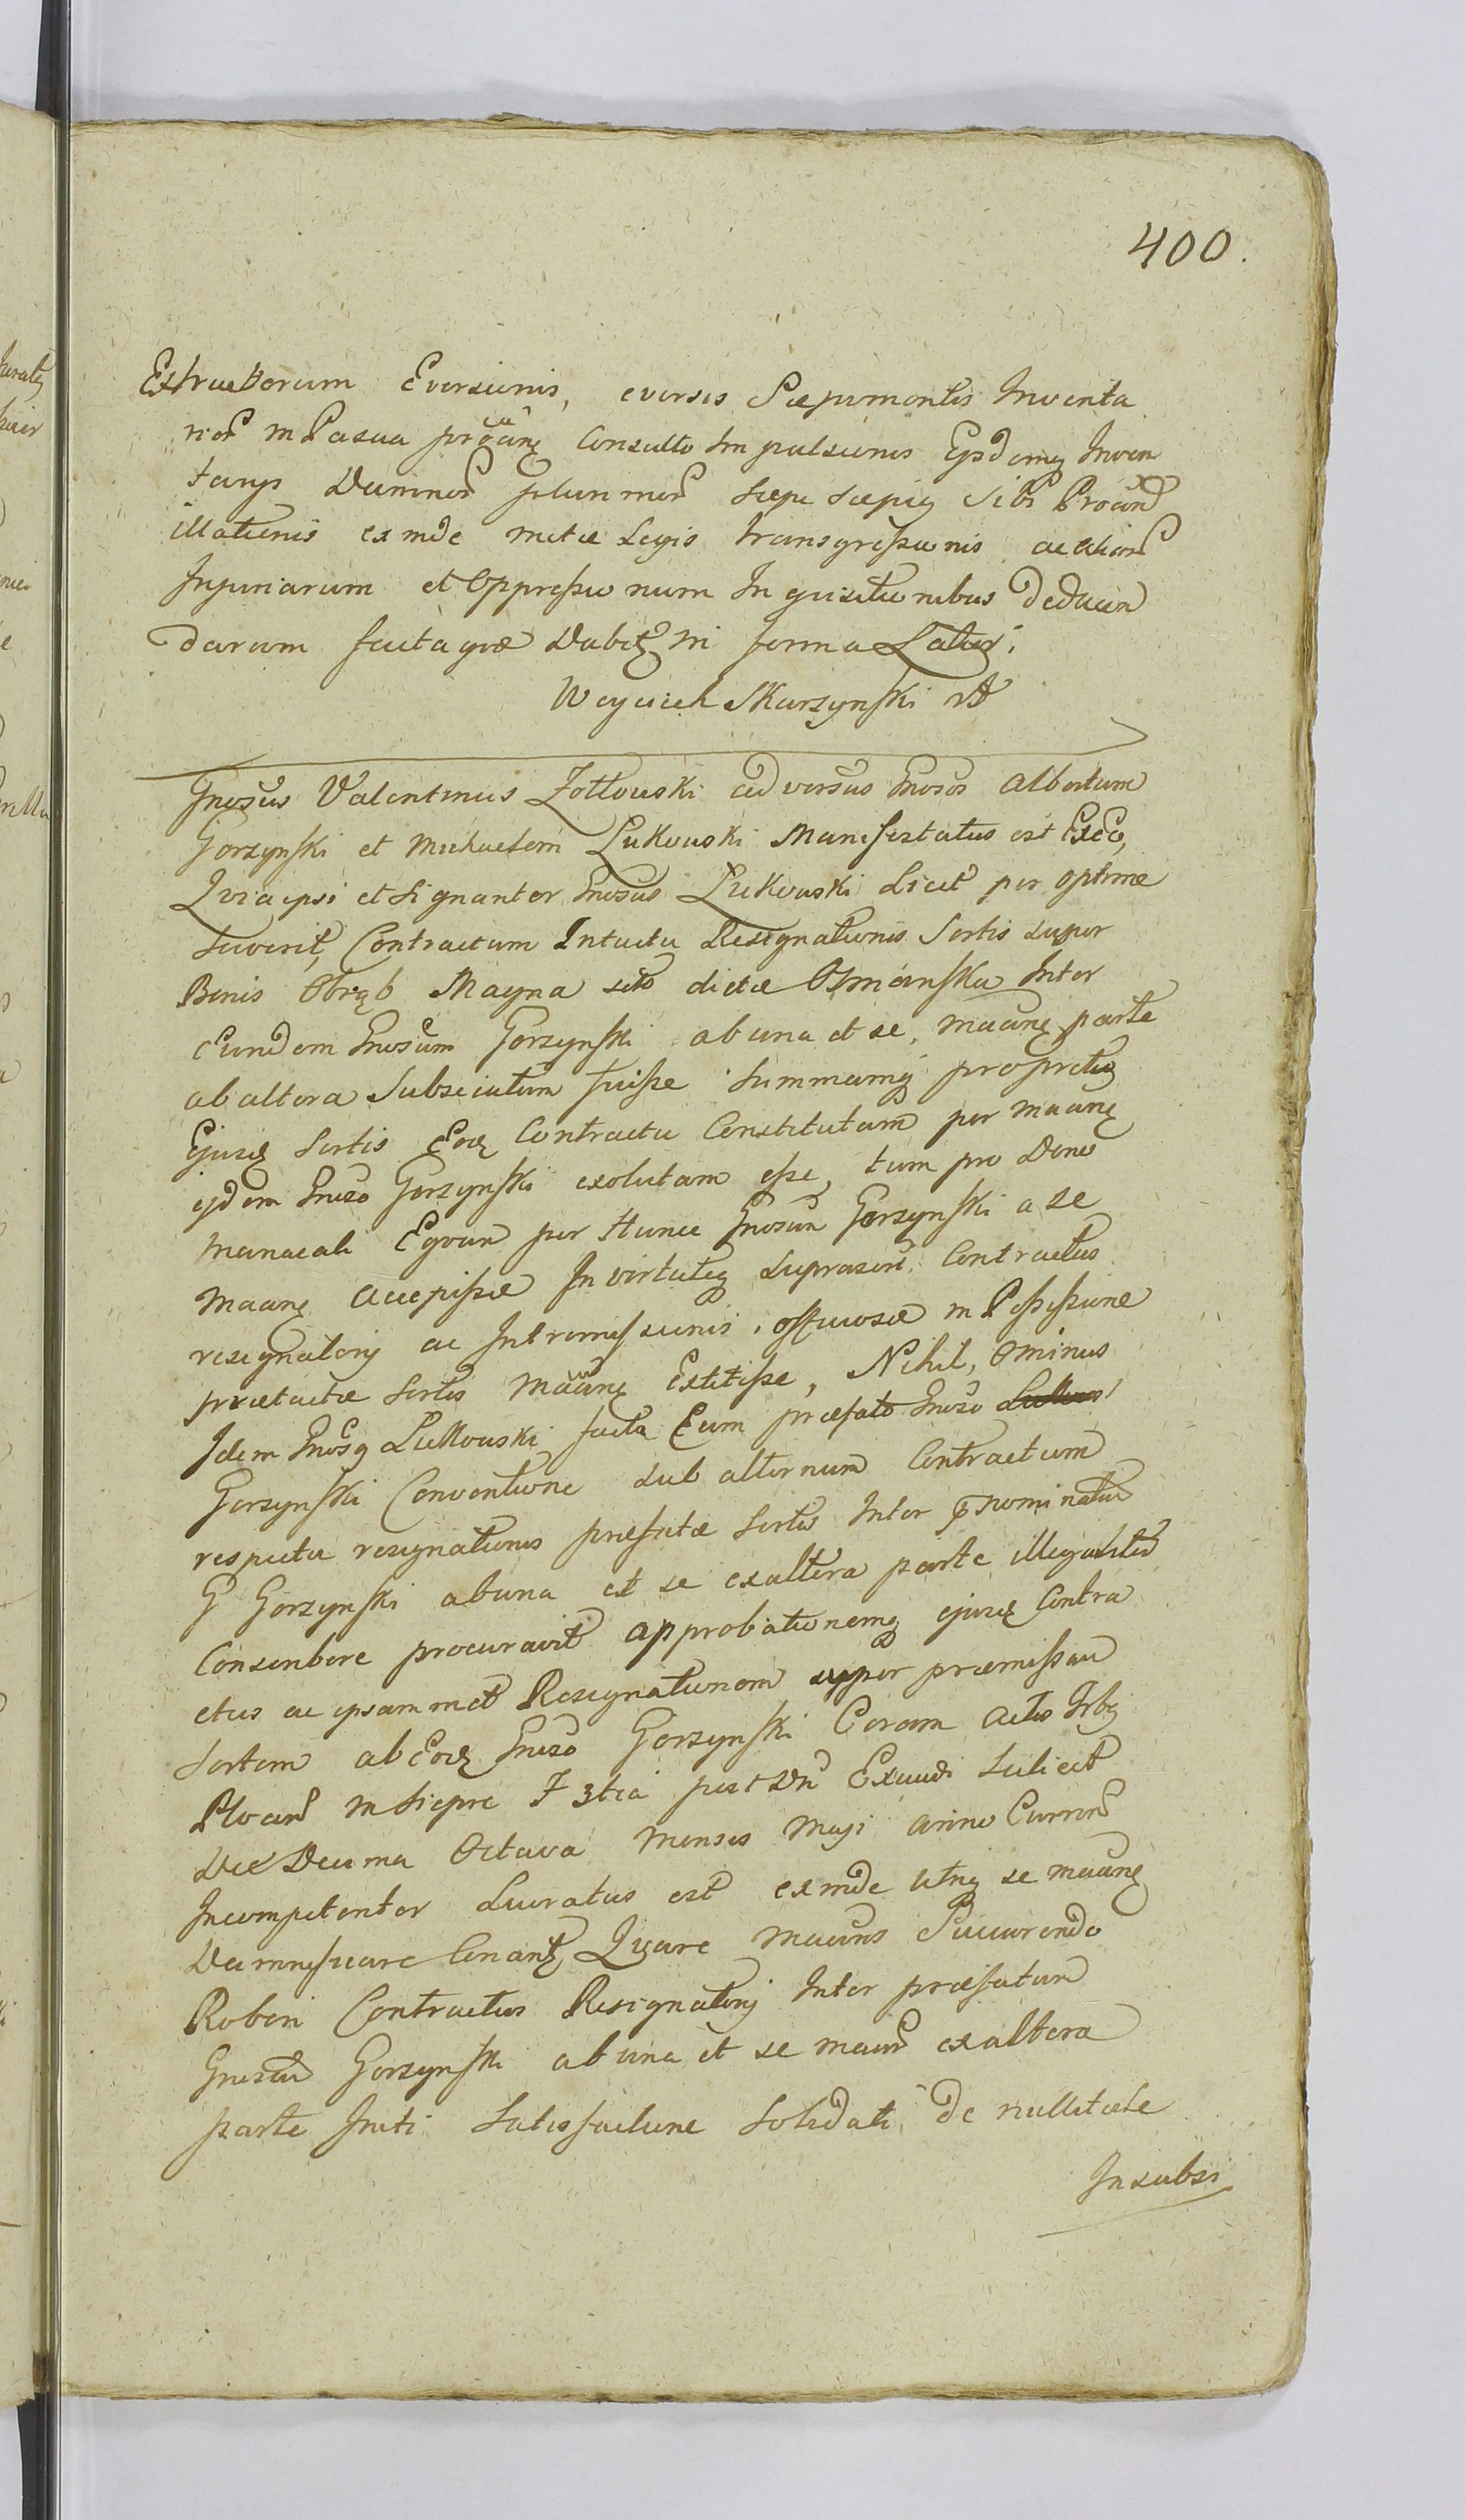 400.
Extructorum Eversionis, eversis Sæpimentis Inventa
rior in Pascua proäng Consulto Impulsionis Ejsdemq Inven
tarys Damnor plurimor sæpe sæpiq Sibi Proän
illationis exinde metæ Legis transgressionis aliar
Injuriarum et Oppressionum Inquisitionibus deducen
darum factaque Dabit in forma Latiori
Woyciech Skarzynski
Gnosus Valentinus Zołtowski adversus Gnosos Albertum
Gorzynski et Michaelem Łukowski Manifestatus est Eo,
Quia ipsi et signanter Gnosus Łukowski Licet per optime
sciverit, Contractum Intuitu Resignationis Sortis super
Bonis Obrąb Magna seto dictæ Osmańska Inter
Eundem Gnosum Gorzynski ab una et se, maäng parte
ab altera Subsecutum fuisse summamq propretiq
Ejusq Sortis Eoq Contractu Constitutam per maäng
ejdem Gnoso Gorzynski exolutam esse, tum pro Dono
manuali Equum per Hunce Gnosum Gorzynski a se
maäng accepisse In virtuteq suprascri Contractus
resignatorij ac Intromissionis, officiosæ in Possessione
prætactæ Sortis maäng Extitisse, Nihil, Ominus
Idem Gnosq Łukowski facta Cum præfato Gnoso
Gorzynski Conventione sub alternum Contractum
respectu resignationis præfatæ Sortis Inter nominatum
G Gorzynski ab una et se ex altera parte illegaliter
Conscribere procuravit approbationemq ejusq Contra
ctus ac ipsammet Resignationem super præmissam
Sortem ab Eoq Gnoso Gorzynski Coram Actis
in Sieprc F 3tia post Exaudi scilicet
Die Decima Octava Mensis Maji anno Curren
Incompetenter Lucratus est exinde utnq se maäng
Damnificare Conant, Quare Maäns Succurendo
Robori Contractus Resignatorij Inter præfatum
Gnosum Gorzynski ab una et se maän ex altera
parte Initi Satisfactione solidati, de nullitate
Insubsi